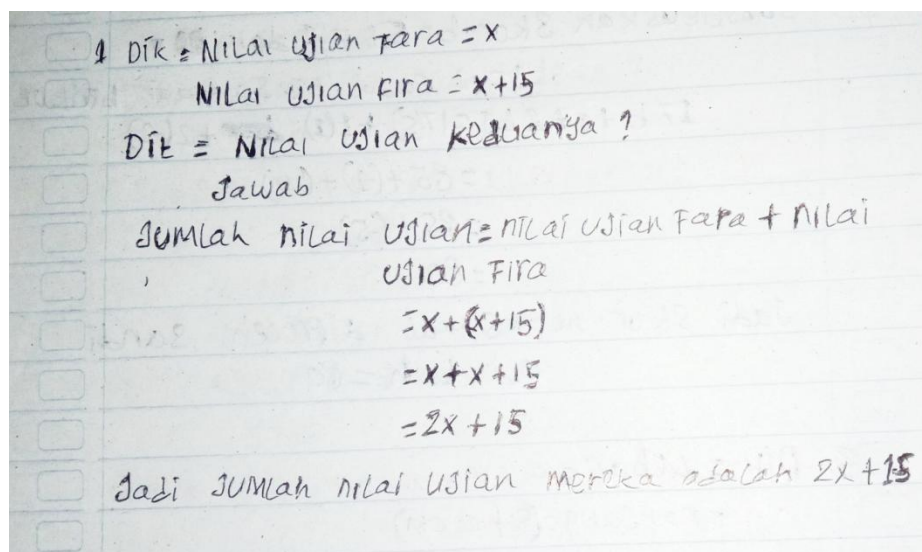 1 Dik = Nilai Ujian Fara = x
Nilai Ujian Fira = x+15
Dit = Nilai Ujian Keduanya ?
Jawab
Jumlah nilai Ujian = nilai Ujian Fara + nilai
Ujian Fira
= x + (x+15)
= x + x + 15
= 2x + 15
Jadi Jumlah nilai Ujian mereka adalah 2x + 15